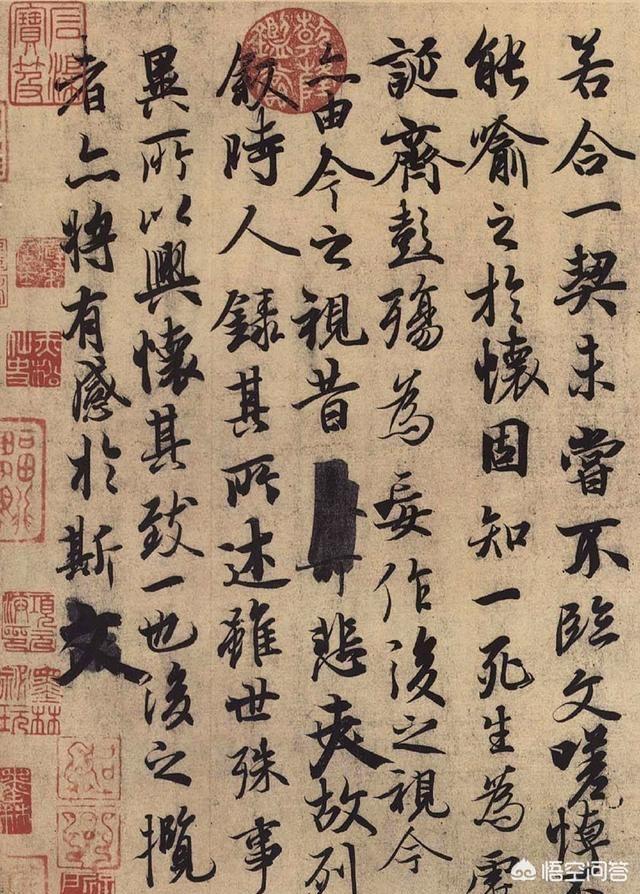 若合一契未嘗不臨文嗟悼
能喻之於懷固知一死生為虛
誕齊彭殤為妄作後之視今
亦由今之視昔悲夫故列
敘時人錄其所述雖世殊事
異所以興懷其致一也後之攬
者亦將有感於斯文
乾隆鑑賞
悟空问答